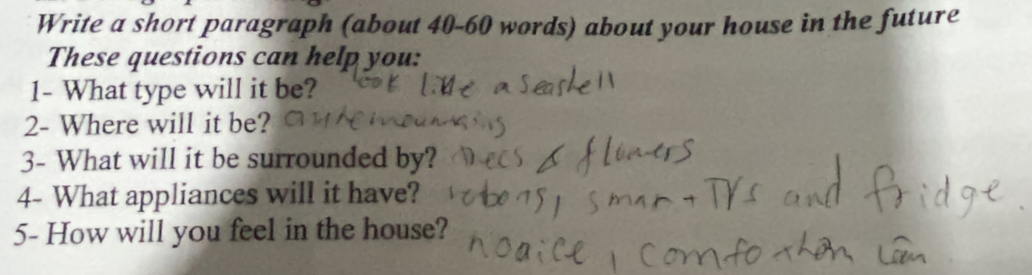 Write a short paragraph (about 40-60 words) about your house in the future
These questions can help you:
1- What type will it be? look like a seashell
2- Where will it be?
3- What will it be surrounded by? & flowers
4- What appliances will it have? smart TVs and fridge.
5- How will you feel in the house?